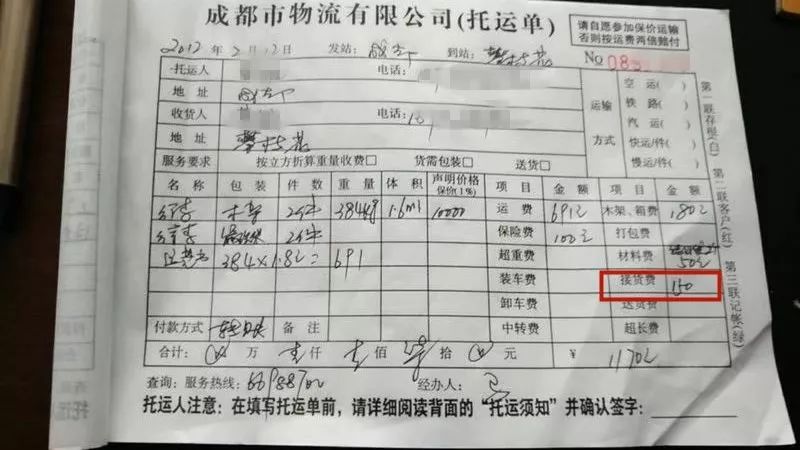 成都市物流有限公司(托运单)
请自愿参加保价运输
否则按运费两倍赔付
2012年2月12日 发站:成都 到站:攀枝花 No 08
托运人 电话:
地址 成都
收货人 电话:
地址 攀枝花
运输方式 空运( ) 铁路( ) 汽运( ) 快运/件( ) 慢运/件(
服务要求 按立方折算重量收费□ 货需包装□ 送货□
名称 包装 件数 重量 体积 声明价格保价(1%) 项目 金额 项目 金额
行李 木架 2件 384kg 1.6m 10000 运费 691元 木架、箱费 180元
行李 2件 保险费 100元 打包费
384×1.8元= 691 超重费 材料费 50元
装车费 接货费 150
卸车费 送货费
付款方式 备注 中转费 超长费
合计: 万 壹仟 壹佰 柒拾 元 ¥ 1170元
查询:服务热线: 经办人:
托运人注意:在填写托运单前,请详细阅读背面的“托运须知”并确认签字:
第一联存根(白) 第二联客户(红) 第三联记帐(绿)